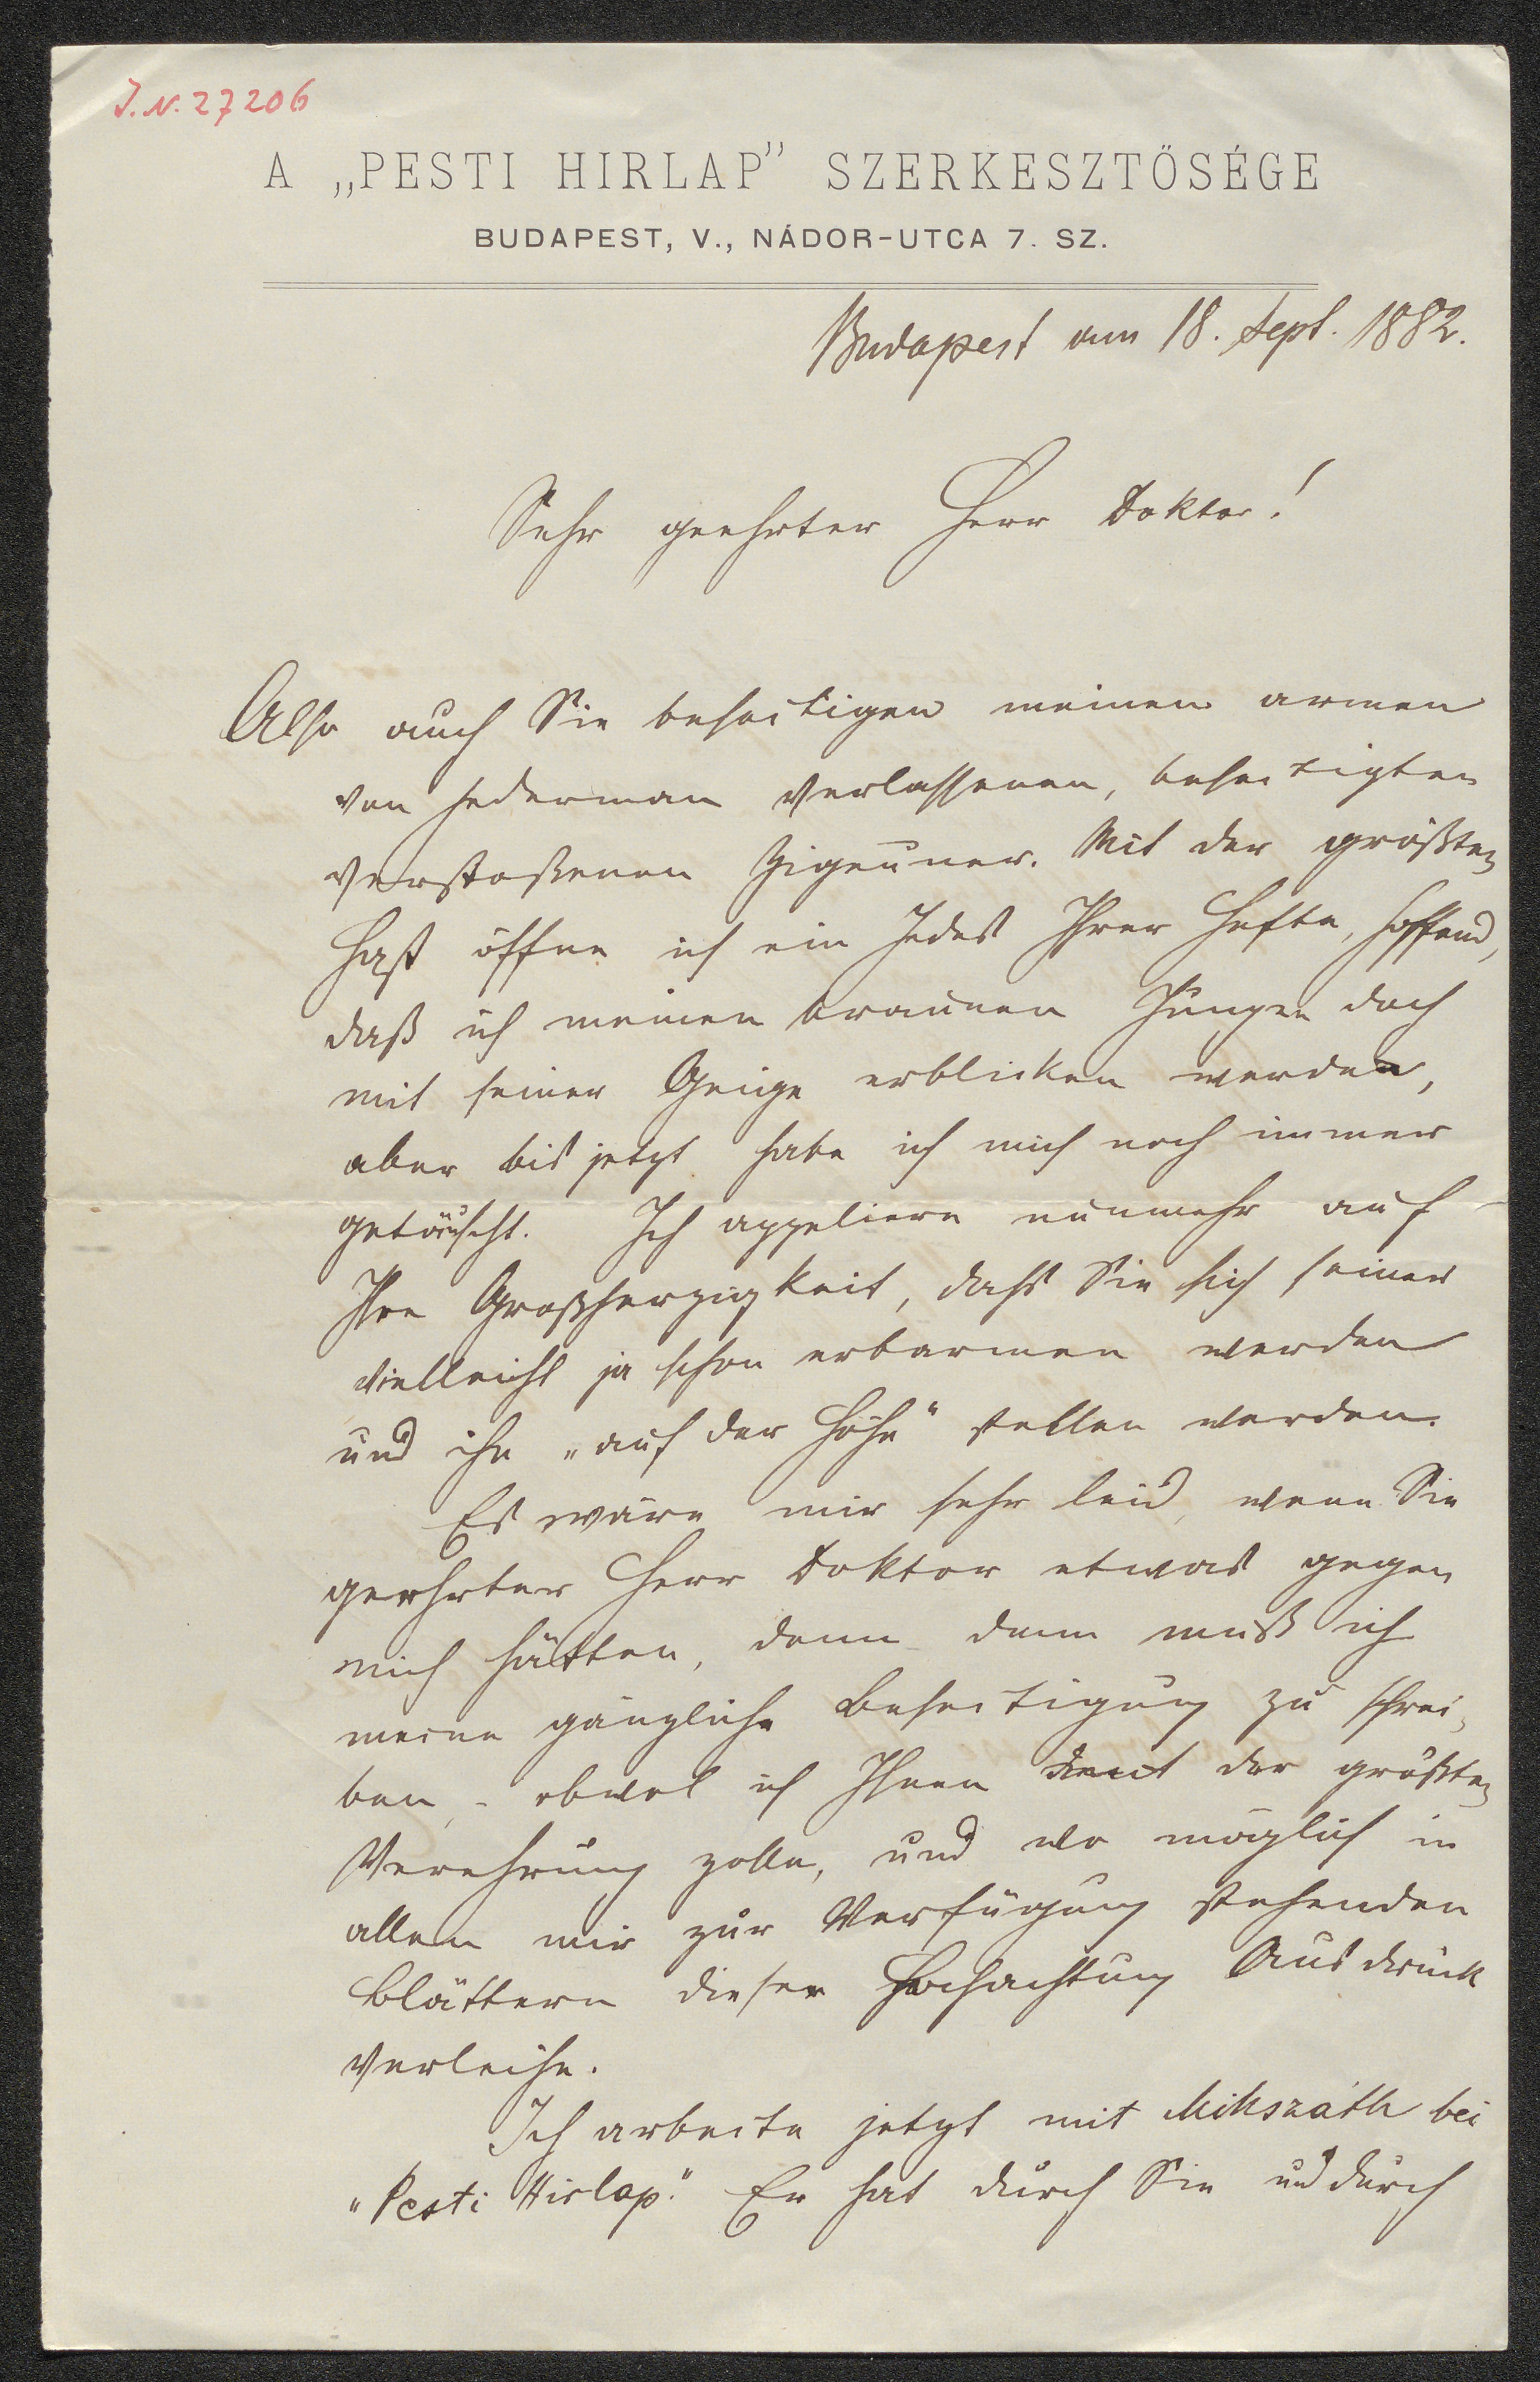 J.N. 27206
A „PESTI HIRLAP” SZERKESZTŐSÉGE
BUDAPEST, V., NÁDOR-UTCA 7. SZ.
Budapest am 18. Sept. 1882.
Sehr geehrter Herr Doktor!
Also auch Sie beseitigen meinen armen
von jederman verlassenen, beseitigten
verstoßenen Zigeuner. Mit der größten
Hast öffne ich ein Jedes Ihrer Hefte, hoffend,
daß ich meinen braunen Jungen doch
mit seiner Geige erblicken werde,
aber bis jetzt habe ich mich noch immer
getäuscht. Ich appeliere nunmehr auf
Ihre Großherzigkeit, dass Sie sich seiner
vielleicht ja schon erbarmen werden
und ihn „auf der Höhe“ stellen werden.
Es wäre mir sehr leid, wenn Sie
geehrter Herr Doktor etwas gegen
mich hätten, denn dem muß ich
meine gänzliche Beseitigung zu schrei-
ben, - obwol ich Ihnen der größten
Verehrung zolle, und wo möglich in
allen mir zur Verfügung stehenden
Blättern dieser Hochachtung Ausdruck
verleihe.
Ich arbeite jetzt mit Mikszáth bei
„Pesti Hirlap.“ Er hat durch Sie und durch